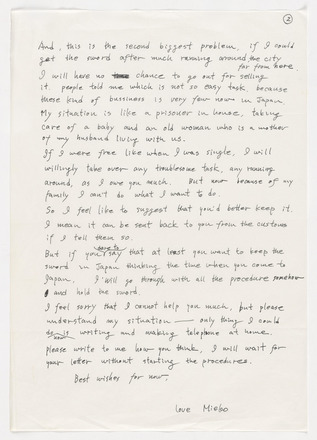 2
And, this is the second biggest problem, if I could
get the sword after much running around the city
far from here.
I will have no chance to go out for selling
it. people told me which is not so easy task, because
these kind of bussiness is very few now in Japan.
My situation is like a prisoner in house, taking
care of a baby and an old woman who is a mother
of my husband living with us.
If I were free like when I was single, I will
willingly take over any troublesome task, any running
around, as I owe you much. But now because of my
family I can't do what I want to do.
So I feel like to suggest that you'd better keep it.
I mean it can be sent back to you from the customs
if I tell them so.
But if you say that at least you want to keep the
sword in Japan thinking the time when you come to
Japan, I'll go through with all the procedure somehow
and hold the sword.
I feel sorry that I cannot help you much, but please
understand my situation — only thing I could
do now is writing and making telephone at home.
please write to me how you think, I will wait for
your letter without starting the procedures.
Best wishes for now,
love Mieko